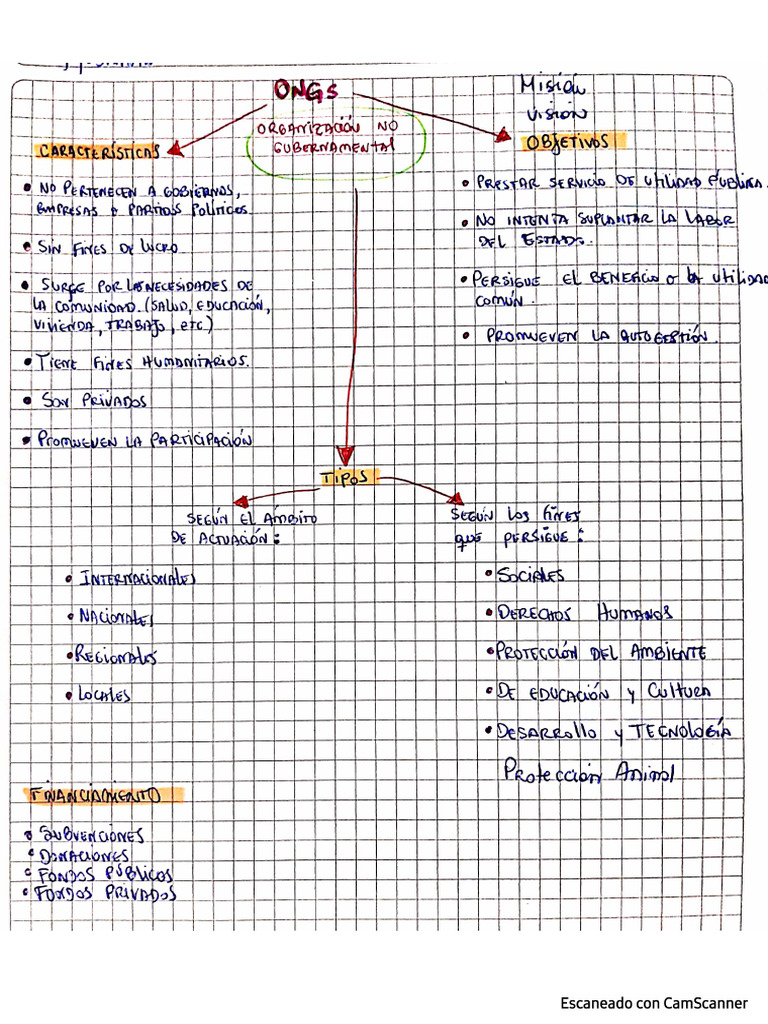 ONGs
ORGANIZACIÓN NO
GUBERNAMENTAL
Misión
Visión
CARACTERÍSTICAS
• NO PERTENECEN A GOBIERNOS,
EMPRESAS o PARTIDOS POLÍTICOS.
• SIN FINES DE LUCRO
• SURGE POR LAS NECESIDADES DE
LA COMUNIDAD. (SALUD, EDUCACIÓN,
VIVIENDA, TRABAJO, etc)
• TIENE FINES HUMANITARIOS.
• SON PRIVADOS
• PROMUEVEN LA PARTICIPACIÓN
OBJETIVOS
• PRESTAR SERVICIO DE UTILIDAD PÚBLICA.
• NO INTENTA SUPLANTAR LA LABOR
DEL ESTADO.
• PERSIGUE EL BENEFICIO o LA UTILIDAD
COMÚN.
• PROMUEVEN LA AUTOGESTIÓN.
TIPOS
SEGÚN EL ÁMBITO
DE ACTUACIÓN:
• INTERNACIONALES
• NACIONALES
• REGIONALES
• LOCALES
SEGÚN LOS FINES
QUE PERSIGUE:
• SOCIALES
• DERECHOS HUMANOS
• PROTECCIÓN DEL AMBIENTE
• DE EDUCACIÓN y CULTURA
• DESARROLLO y TECNOLOGÍA
Protección Animal
FINANCIAMIENTO
• SUBVENCIONES
• DONACIONES
• FONDOS PÚBLICOS
• FONDOS PRIVADOS
Escaneado con CamScanner